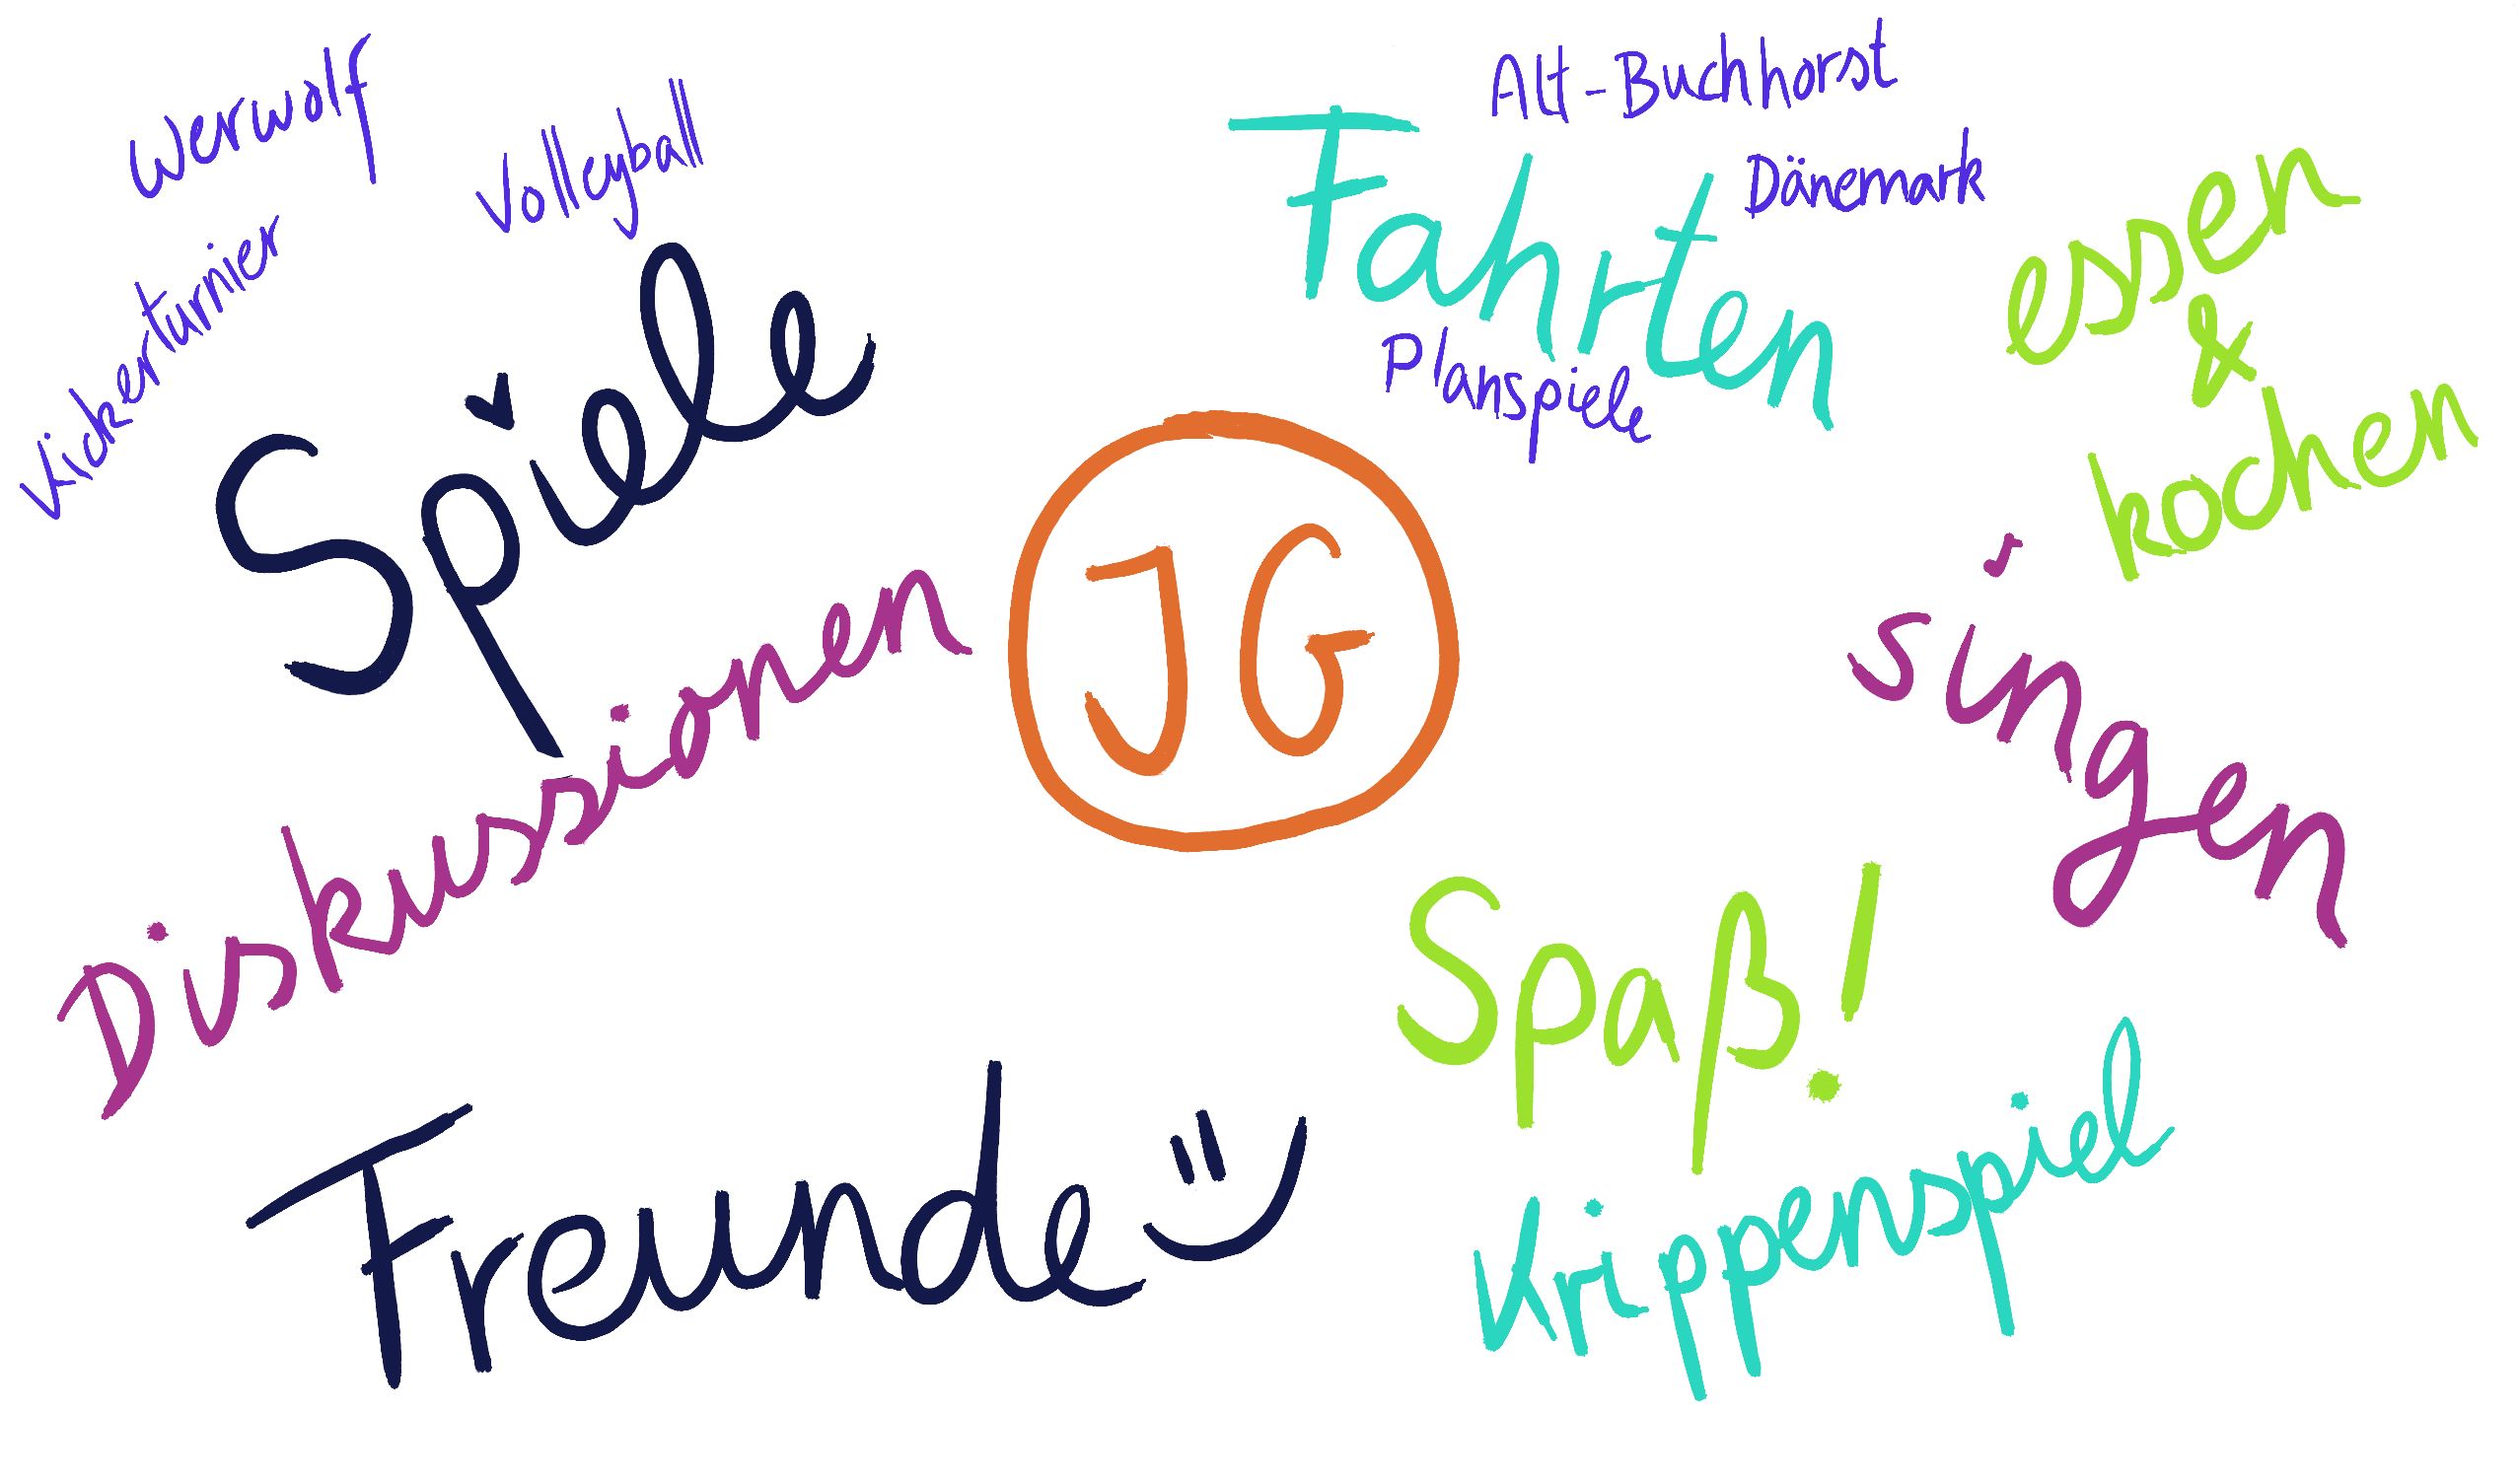 Werwolf
Volleyball
Kickerturnier
Spiele
Alt-Buchhorst
Fahrten
Dänemark
Planspiele
essen
&
kochen
JG
Diskussionen
singen
Spaß!
Freunde
Krippenspiel